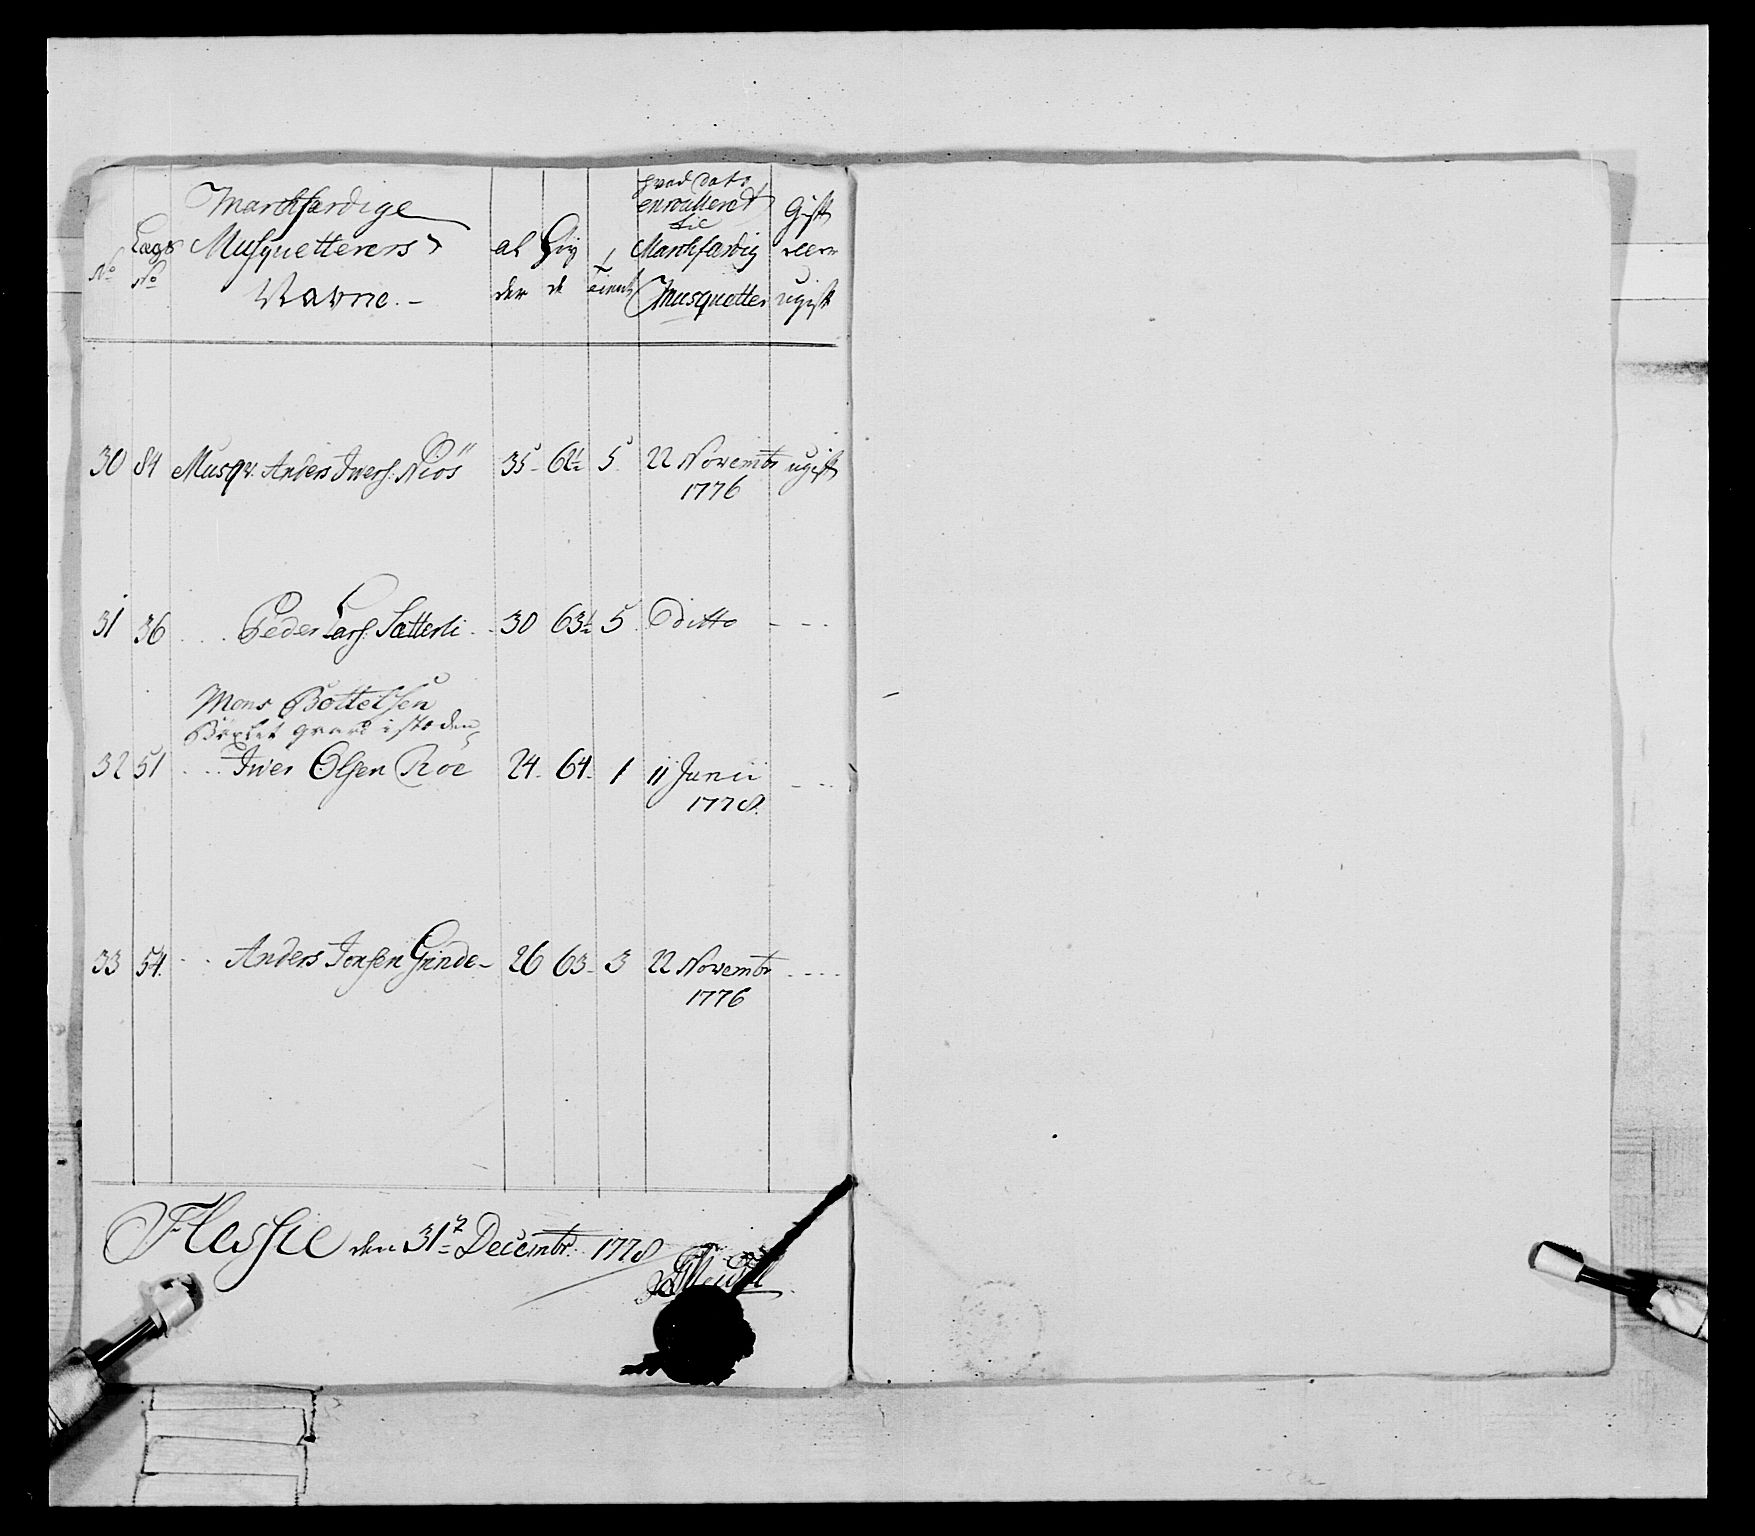 No
Lægs No
Marchfærdige Musquetterers Navne.
alder
Høyde
tient
hvad dato enroulleret til Marchfærdig Musquetter
Gift eller ugift
30 84 Musqr. Anders Ivers. Niös 35 61½ 5 22 Novembr ugift
1776
31 36 Peder Lars. Sætterli 30 63½ 5 Ditto
Mons Bottelsen
i steden
32 51 Iver Olsen Roe 24 64 1 11 Junii
1778
33 54 Anders Jonsen Grinde 26 63 3 22 Novembr
1776
den 31 Decembr. 1778